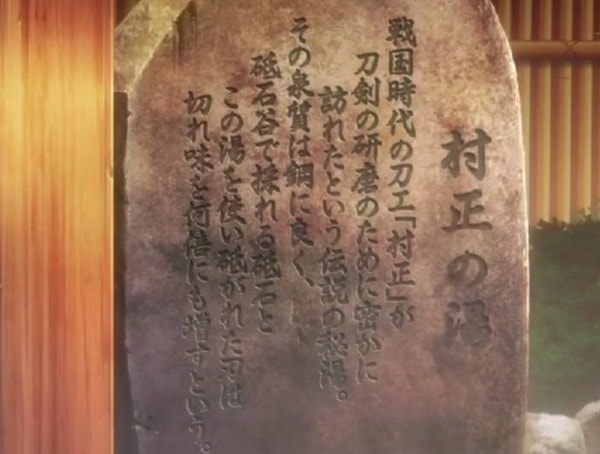 村正の湯
戦国時代の刀工「村正」が
刀剣の研磨のために密かに
訪れたという伝説の秘湯。
その泉質は鋼に良く、
砥石谷で採れる砥石と
この湯を使い砥がれた刃は
切れ味を何倍にも増すという。